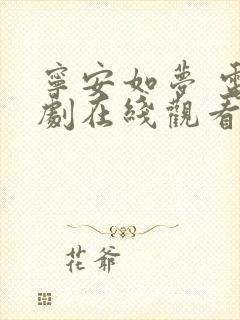 寧安如夢 電
劇在綫觀看
花爺